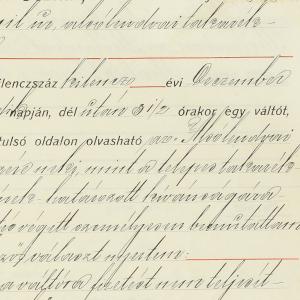 úr, alsólendvai takarék-
lenczszáz kilencz évi December
napján, dél után 3 1/2 órakor egy váltót,
tulsó oldalon olvasható az Alsólendvai
neki, mint a telepes takarék-
határozott kívánságára
végett személyesen bemutattam
választ nyertem:
a váltóra fizetést nem teljesít-